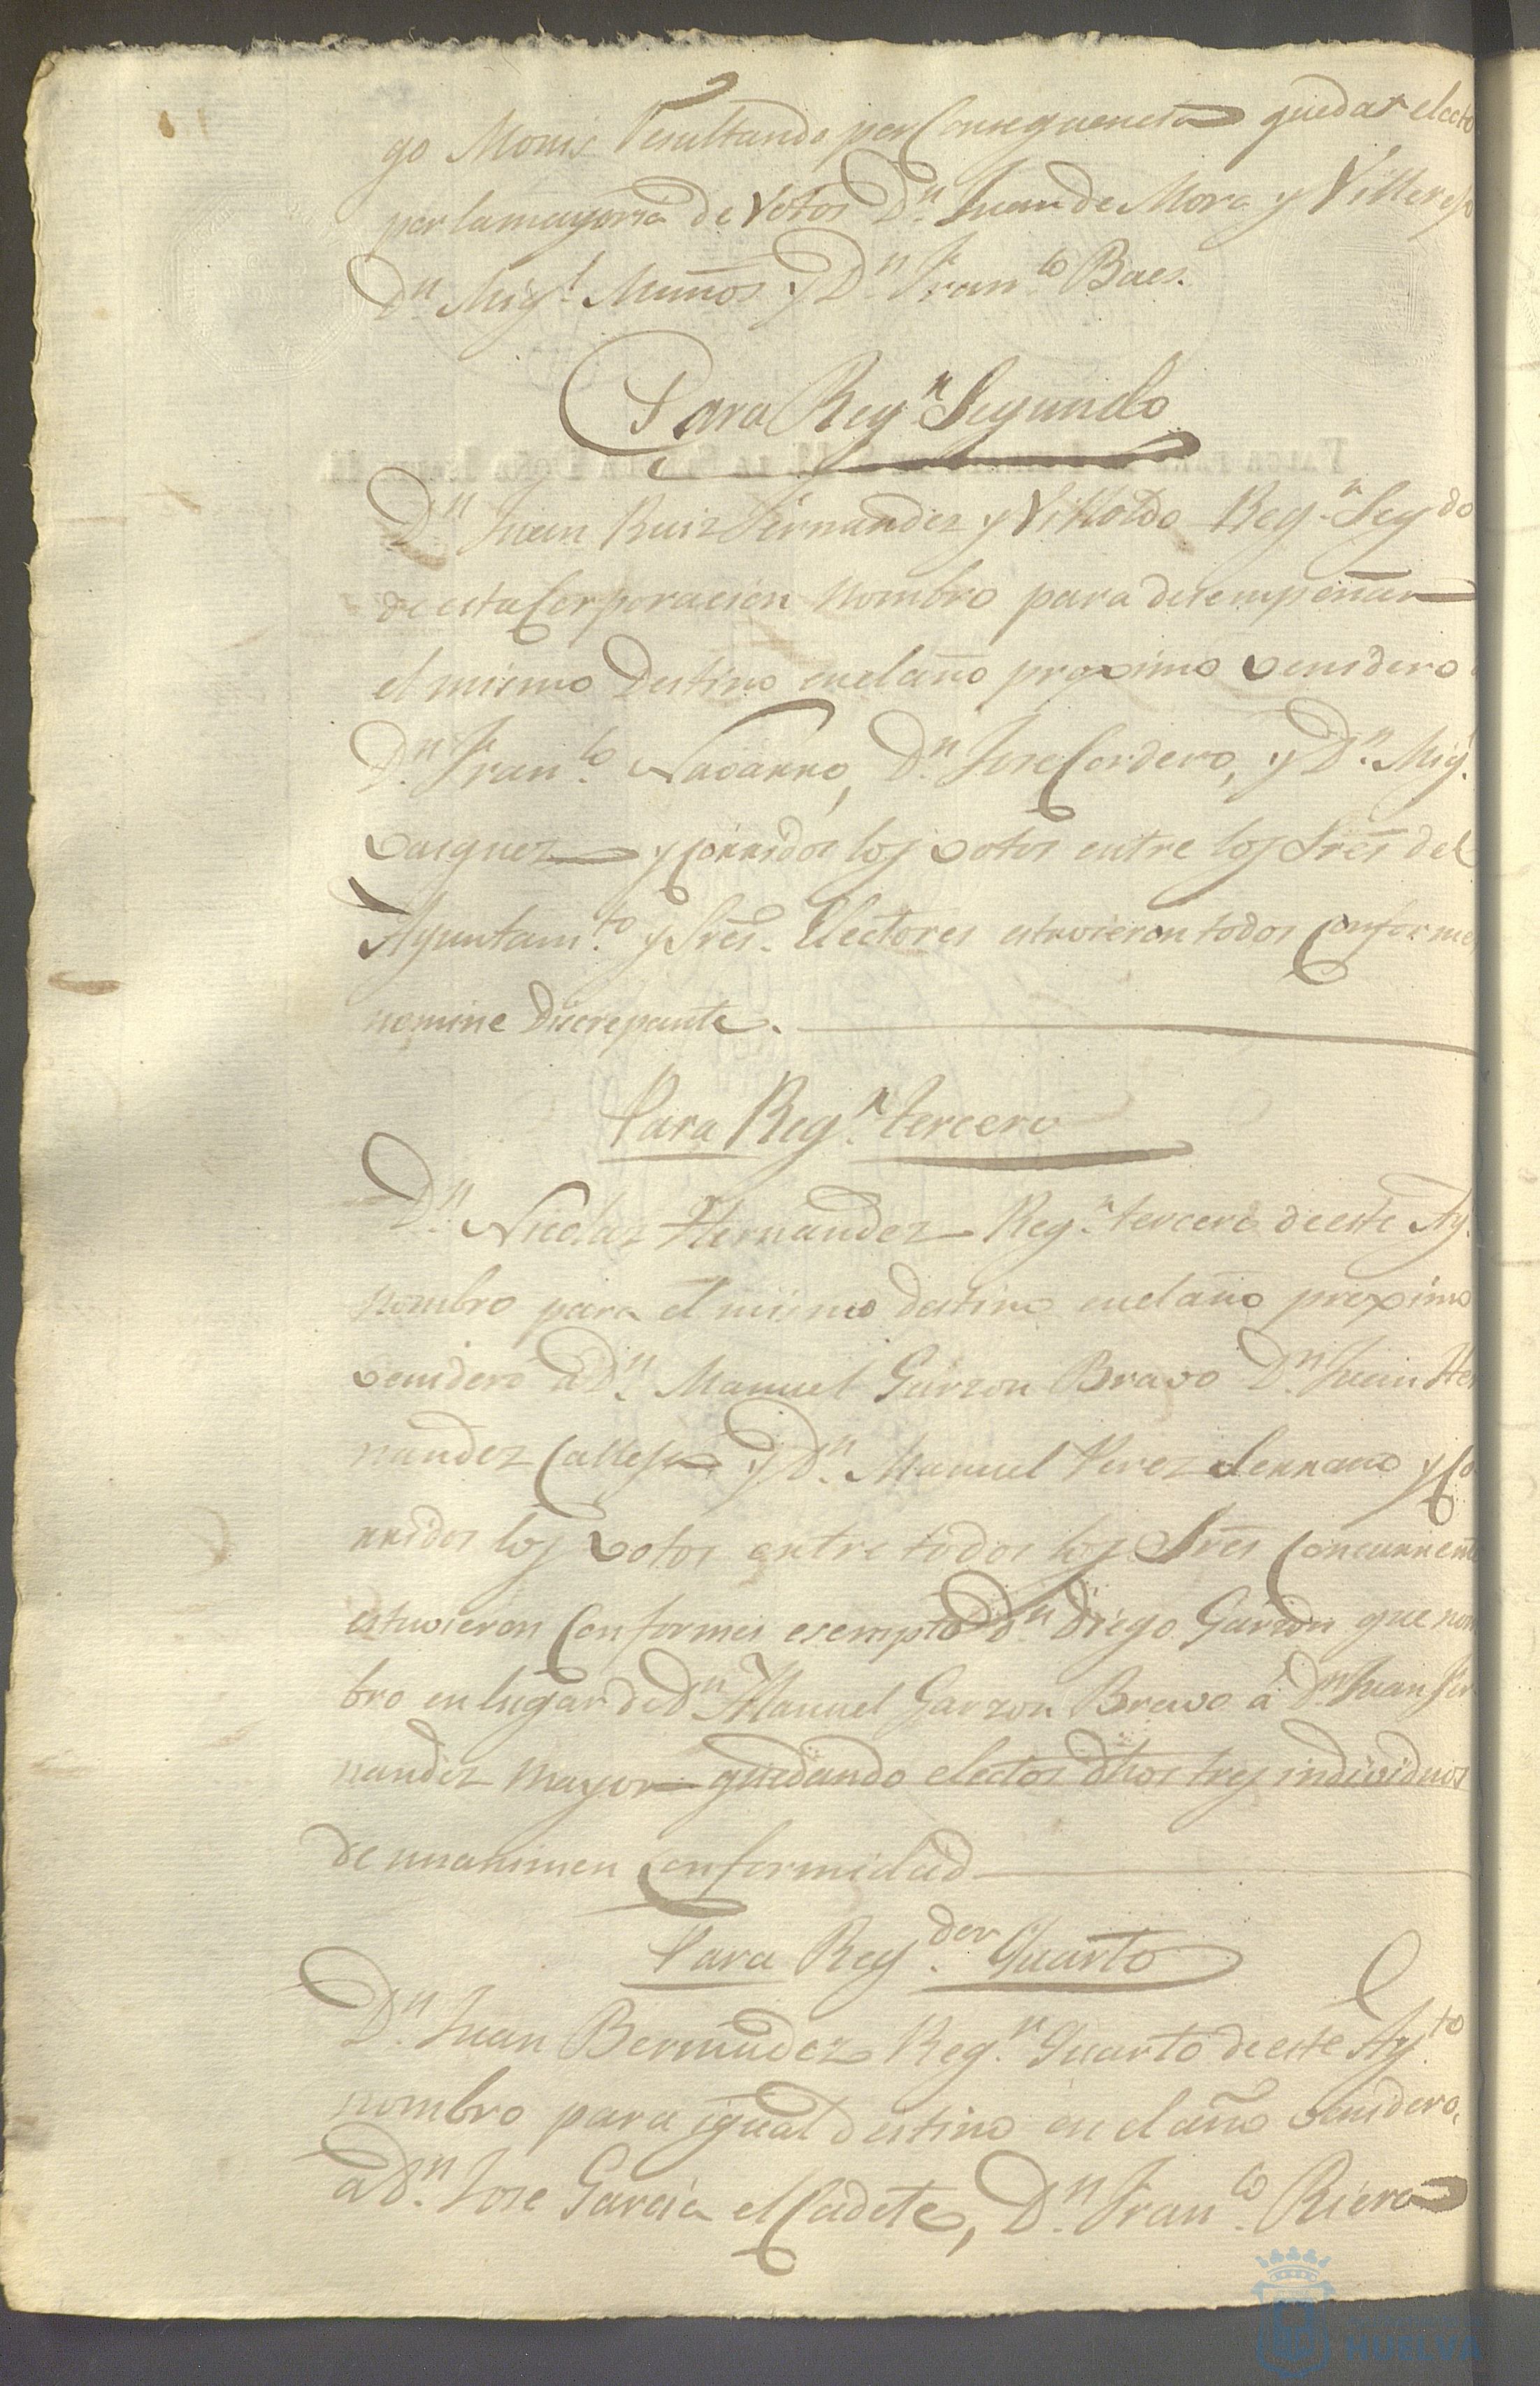 go Monis Resultando por Consequencia quedar electo
por la mayoria de Votos Dn. Juan de Mora y Villere
Dn. Migl. Muños y Dn. Franco. Baes.
Para Regn. Segundo
Dn. Juan Ruiz Fernandez y Villoldo Regn. Segdo
de esta Corporacion nombro para desempeñar
el mismo Destino en el año proximo venidero
Dn. Franco. Navarro, Dn. Jose Cordero, y Dn. Migl.
Vasquez y Corridos los votos entre los Sres del
Ayuntamto. y Sres. Electores estuvieron todos Conforme
nomine Discrepante.
Para Regn. tercero
Dn. Nicolas Hernandez Regn. tercero de este Ay.
nombro para el mismo destino en el año proximo
venidero a Dn. Manuel Garzon Bravo Dn. Juan Her
nandez Calleja y Dn. Manuel Perez Serrano y Co
rridos los votos entre todos los Sres Concurrente
estuvieron Conformes esempto Dn. Diego Garzon que nom
bro en lugar de Dn. Manuel Garzon Bravo á Dn. Juan Fer
nandez mayor quedando electos dhos tres individuos
de unanimen Conformidad
Para Regdor. Quarto
Dn. Juan Bermudez Regn. Quarto de este Ayto.
nombro para igual destino en el año venidero,
a Dn. Jose Garcia el Cadete, Dn. Franco. Riera
HUELVA